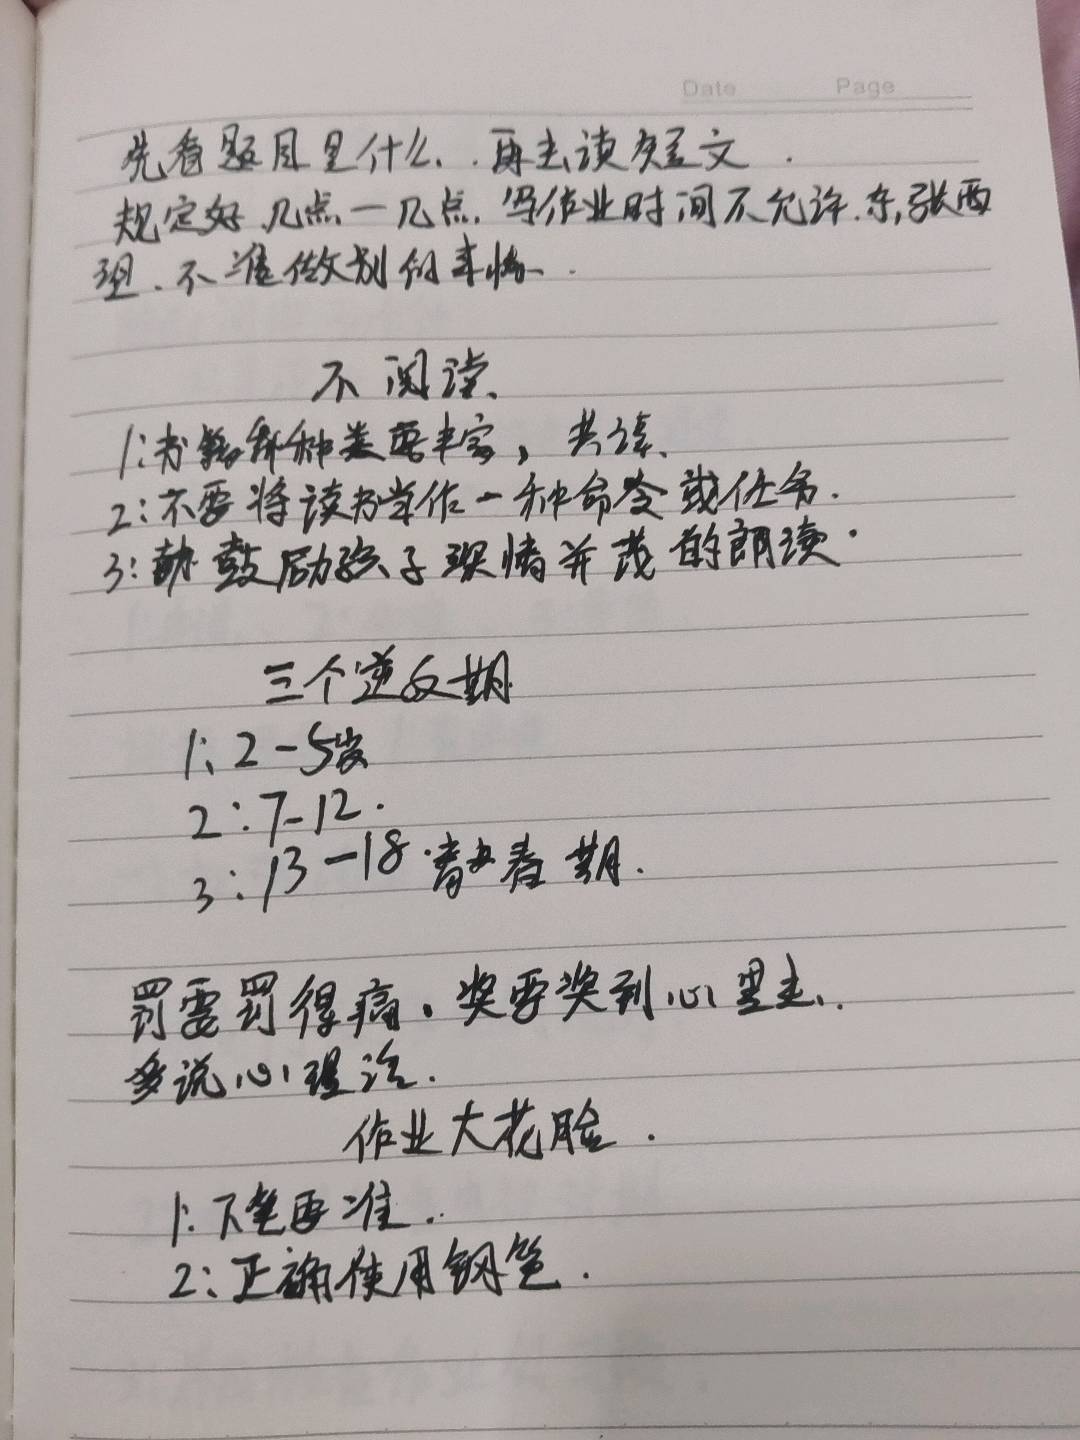 Date Page
先看题目是什么.再去读短文.
规定好几点一几点.写作业时间不允许.东张西
望.不准做别的事情.
不阅读.
1:书籍种类要丰富,共读.
2:不要将读书当作一种命令或任务.
3:鼓励孩子声情并茂的朗读.
三个逆反期
1:2-5岁
2:7-12.
3:13-18.青春期.
罚要罚得痛.奖要奖到心里去.
多说心理话.
作业大花脸.
1:下笔要准.
2:正确使用钢笔.